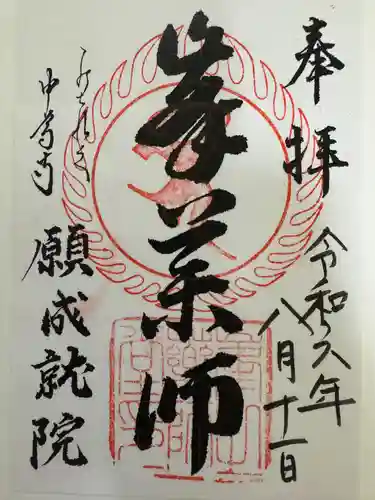 奉拝
令和六年
八月十一日
峯薬師
中尊寺
願成就院